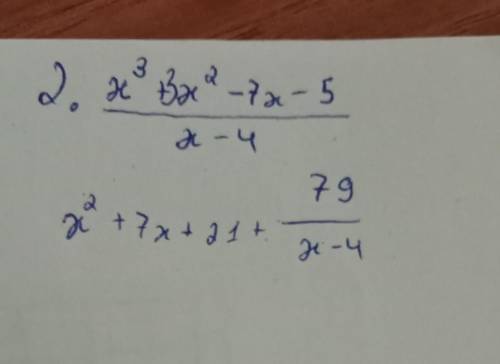 2. x³ + 3x² - 7x - 5
x - 4
x² + 7x + 21 + 79
x - 4